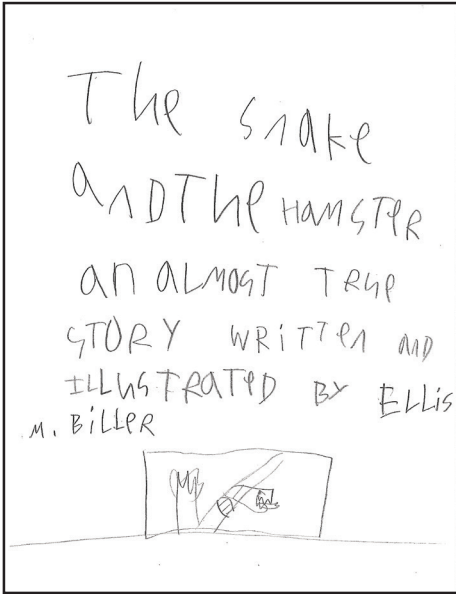 The snake
anD The HAMSTeR
an ALMOST TRue
STORY WRiTTen AnD
ILLuSTRATeD BY ELLis
M. BiLLeR